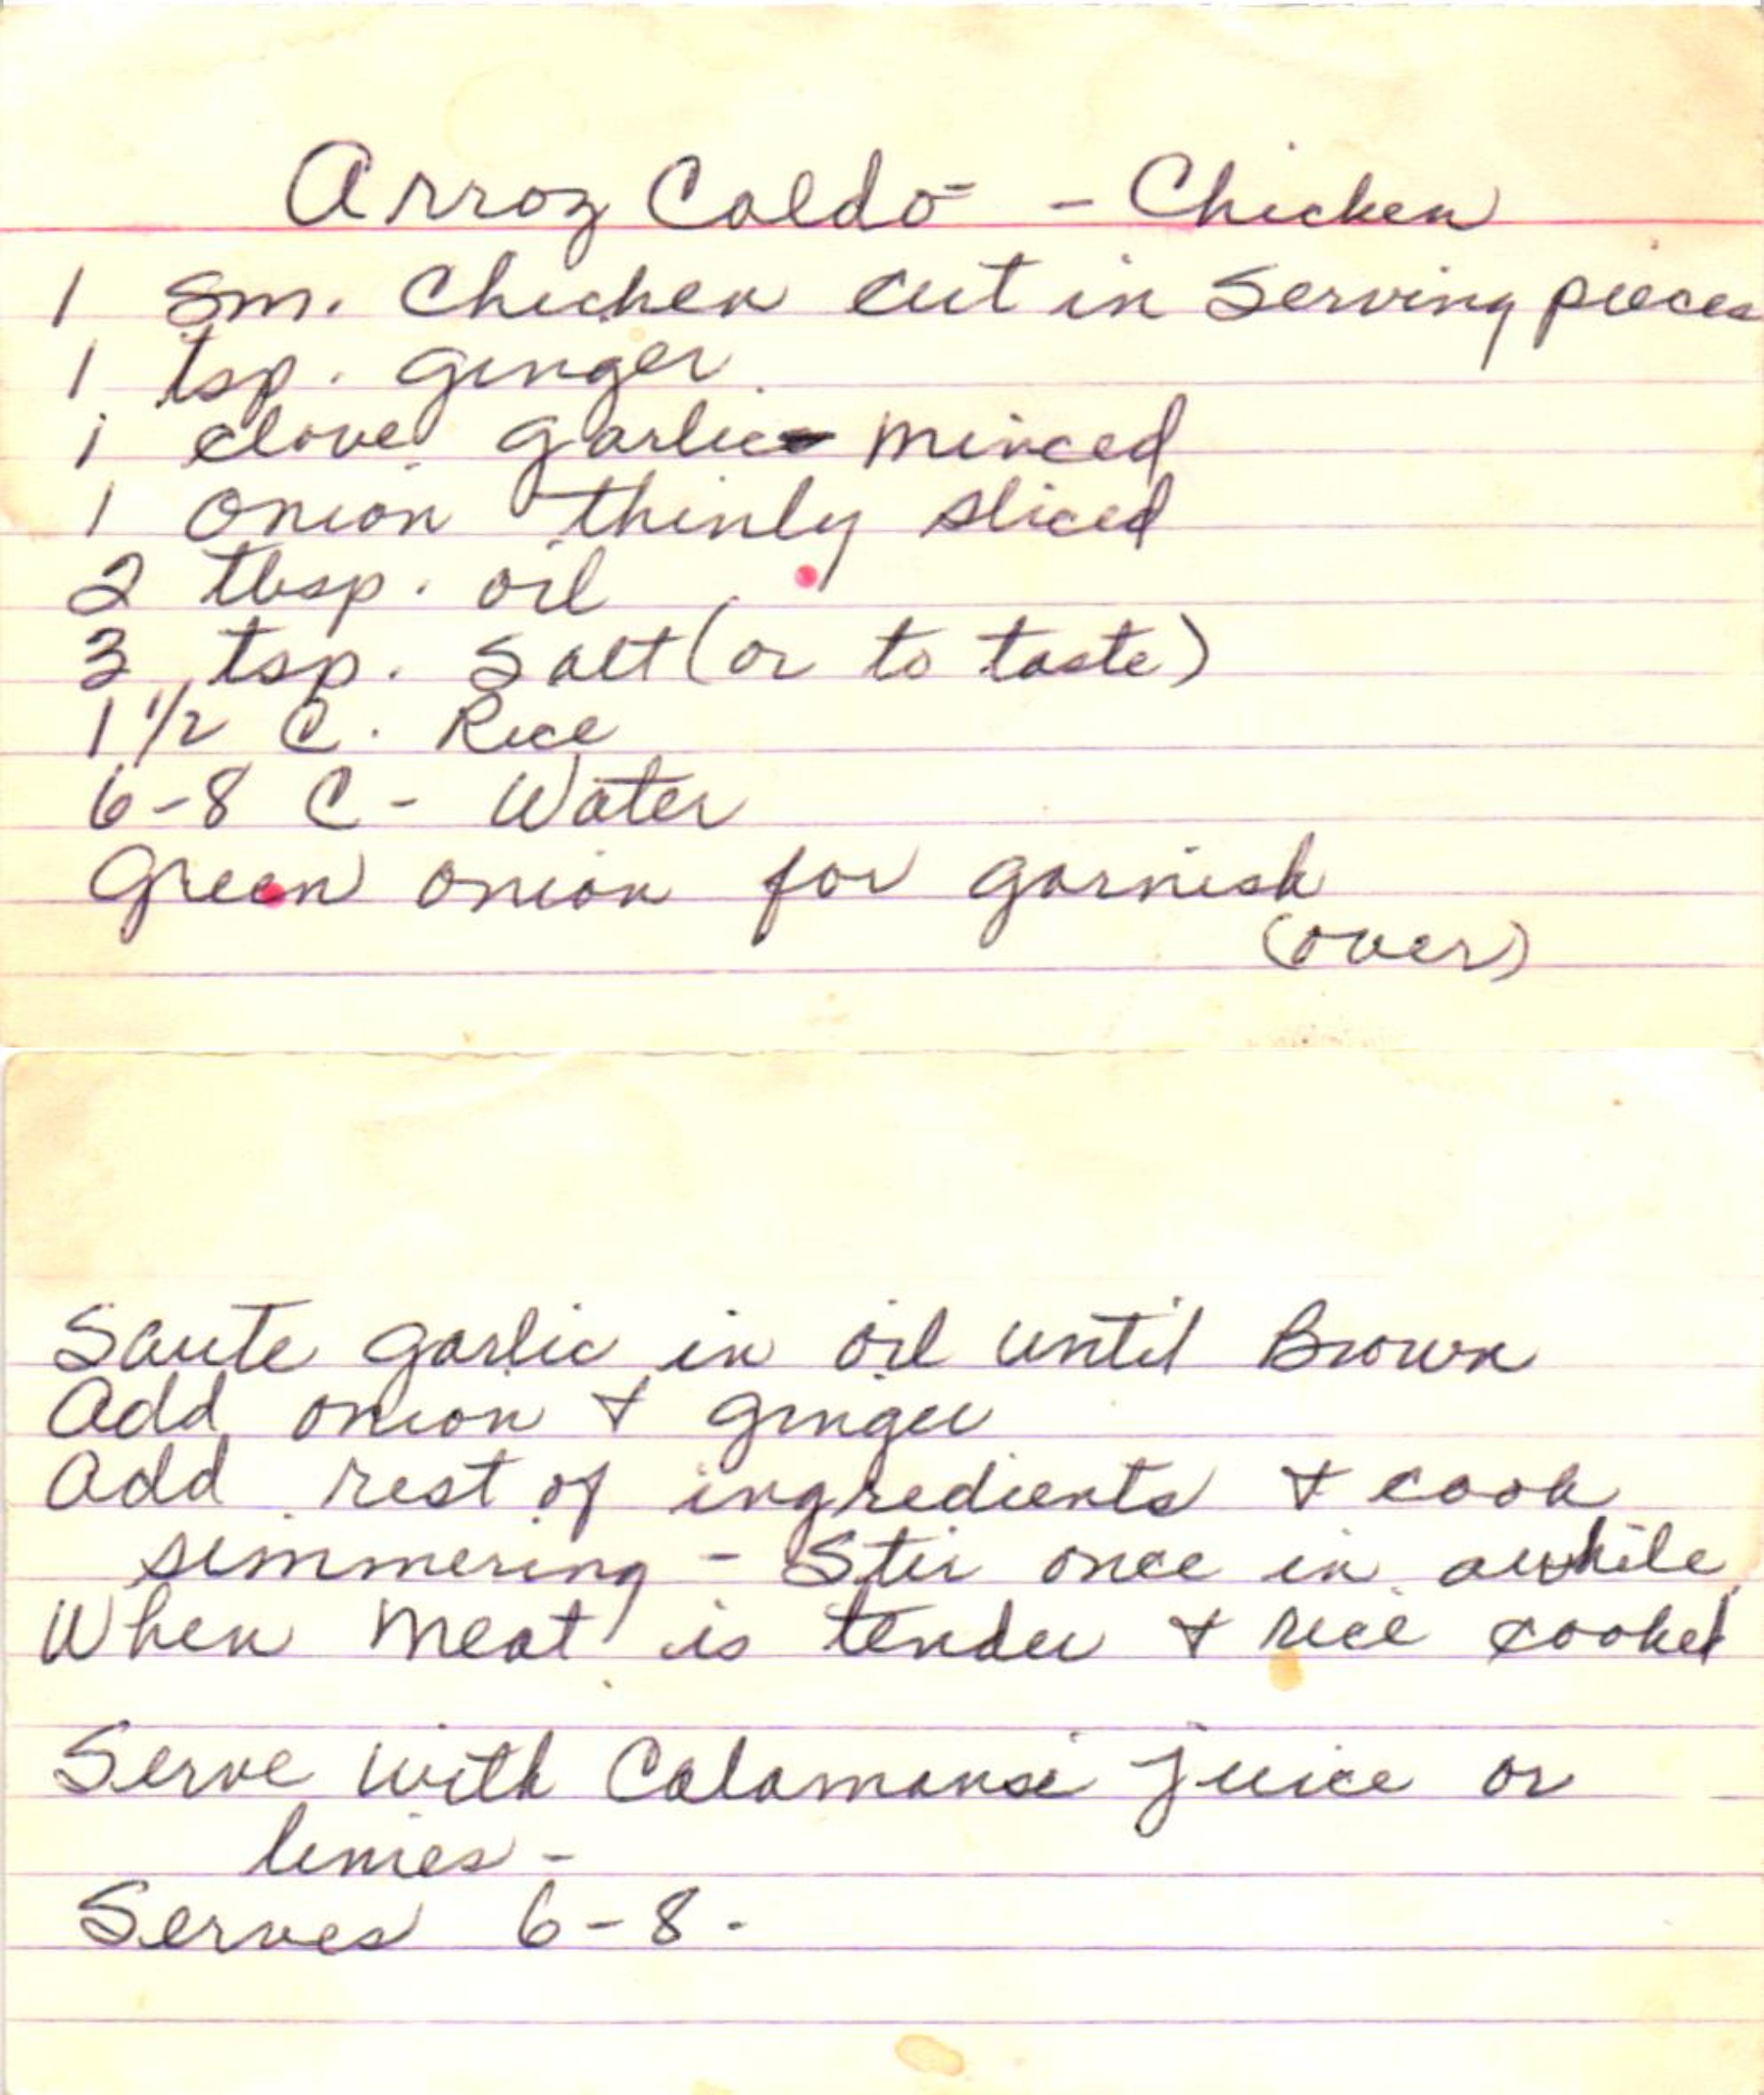 Arroz Caldo - Chicken
1 Sm. Chicken cut in Serving pieces
1 tsp. ginger
1 clove garlic - minced
1 onion thinly sliced
2 tbsp. oil
3 tsp. Salt (or to taste)
1 1/2 C. Rice
6-8 C - Water
Green onion for garnish
(over)
Saute garlic in oil until Brown
Add onion & ginger
Add rest of ingredients & cook
simmering - Stir once in awhile
When meat is tender & rice cooked
Serve with Calamansi juice or
limes -
Serves 6-8.